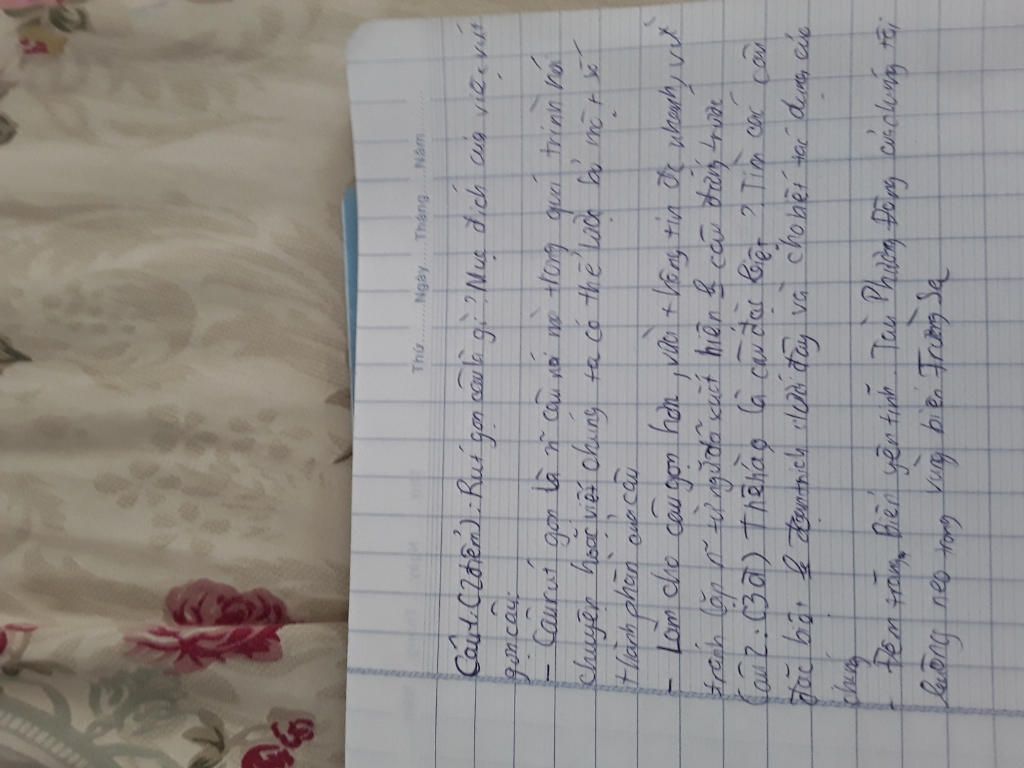 Thứ............Ngày......Tháng......Năm............
Câu1:(2điểm): Rút gọn câu là gì? Mục đích của việc rút
gọn câu:
- Câu rút gọn là n~ câu nói mà trong quá trình nói
chuyện hoặc viết chúng ta có thể lược bỏ mộ + số
thành phần của câu
- Làm cho câu gọn hơn, vừa + thông tin đc nhanh, vừa
tránh lặp n~ từ ngữ đã xuất hiện câu đứng trước
Câu2: (3đ) Thế nào là câu đặc biệt? Tìm các câu
đặc biệt đoạn trích dưới đây và cho biết tác dụng của
chúng
- Đêm trăng, Biển yên tĩnh. Tàu Phương Đông của chúng tôi
buông neo trong vùng biển Trường Sa